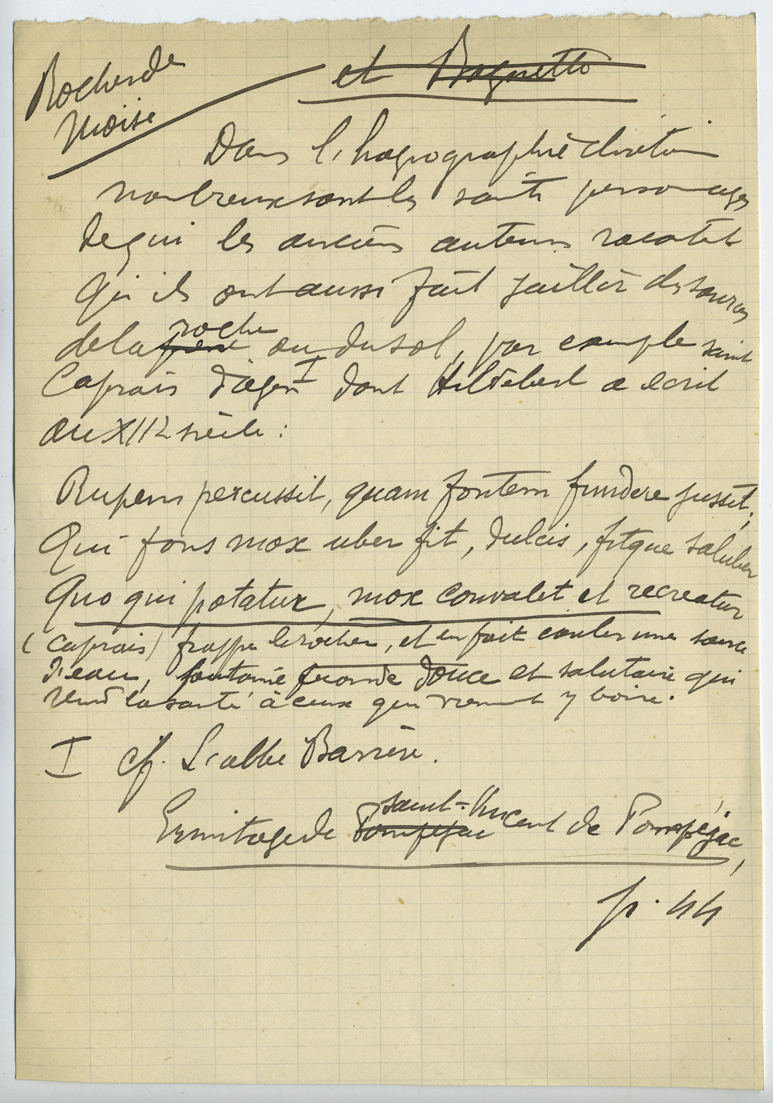 Rocher de
Moïse
et Baguette
Dans l'hagiographie chrétienne
nombreux sont les saints personnages
de qui les anciens auteurs racontent
qu'ils ont aussi fait jaillir des sources
de la pierre roche ou du sol, par exemple saint
Caprais d'Agen I dont Hildebert a écrit
au XII2 siècle :
Rupem percussit, quam fontem fundere jussit ;
Qui fons mox uber fit, dulcis, fitque saluber
Quo qui potatur, mox convalet et recreatur
(Caprais) frappe le rocher, et en fait couler une source
d'eau, fontaine douce et salutaire qui
rend la santé à ceux qui viennent y boire.
I cf. L'abbé Barrère.
Ermitage de Pompéjac saint-Vincent de Pompéjac,
p. 44